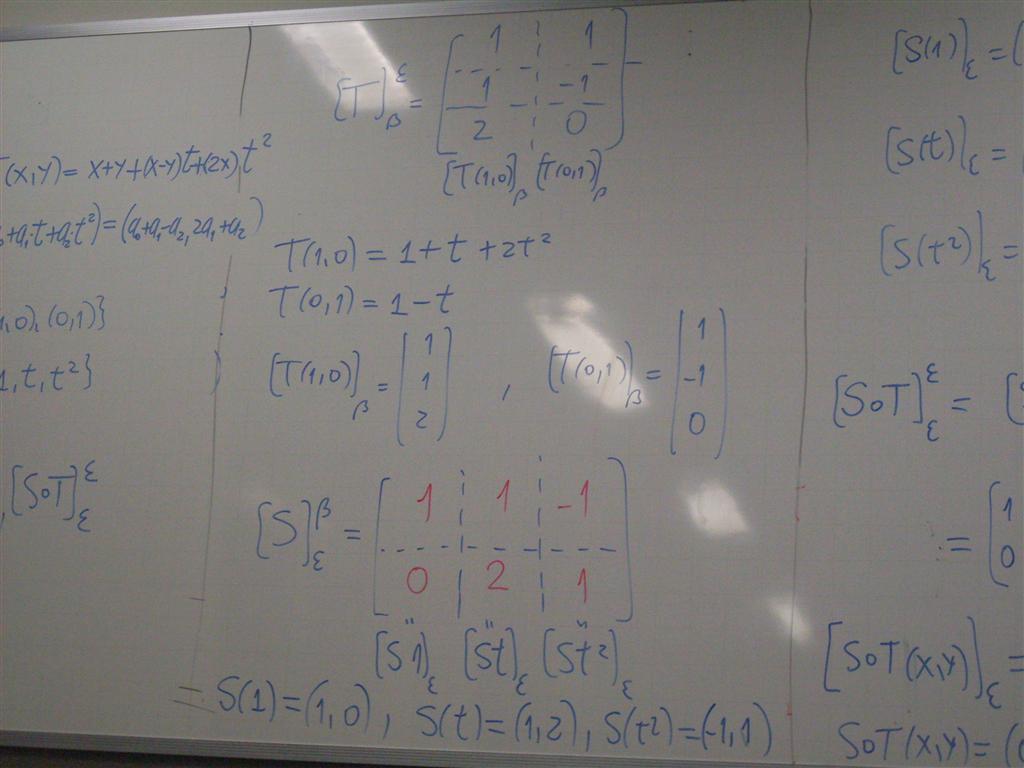 T(x,y) = x+y+(x-y)t+(2x)t²
+a₁t+a₂t²) = (a₀+a₁-a₂, 2a₁+a₂)
1,0), (0,1)}
1, t, t²}
, [SoT]^ε_ε
[T]^ε_β = [ 1 1
1 -1
2 0 ]
[T(1,0)]_β [T(0,1)]_β
T(1,0) = 1 + t + 2t²
T(0,1) = 1 - t
[T(1,0)]_β = [ 1 1 2 ] , [T(0,1)]_β = [ 1 -1 0 ]
[S]^β_ε = [ 1 1 -1
0 2 1 ]
[S1]_ε [St]_ε [St²]_ε
= S(1) = (1,0), S(t) = (1,2), S(t²) = (-1,1)
[S(1)]_ε = (
[S(t)]_ε =
[S(t²)]_ε =
[SoT]^ε_ε = [S
= [ 1
0
[SoT(x,y)]_ε =
SoT(x,y) = (